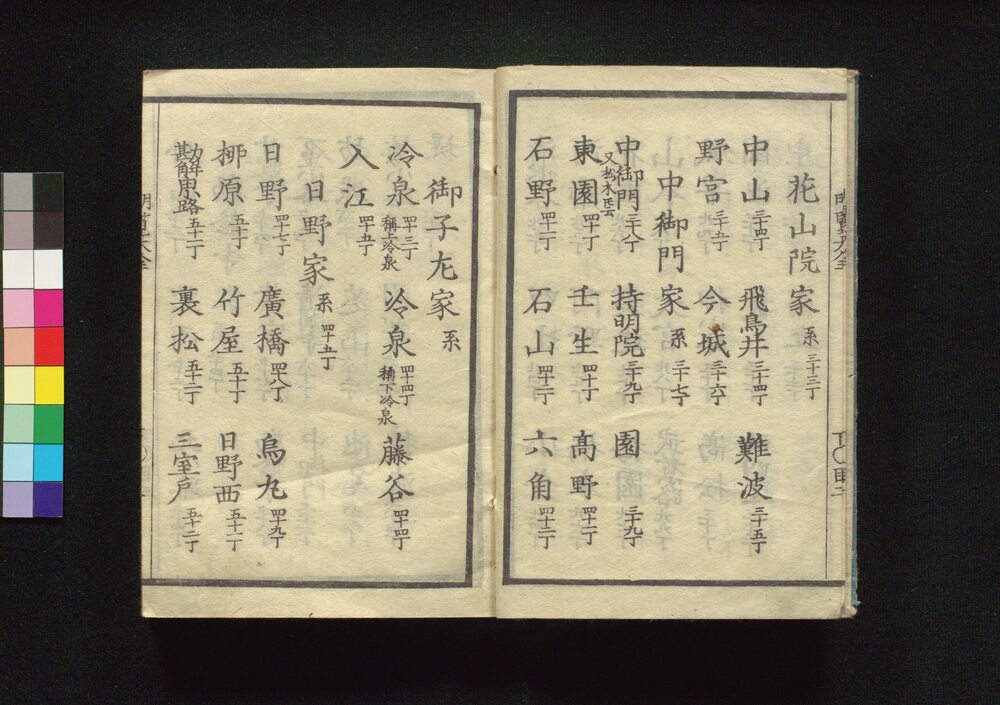 花山院家 系 三十三丁
中山 三十四丁 飛鳥井 三十四丁 難波 三十五丁
野宮 三十五丁 今城 三十六丁
中御門家 系 三十七丁
中御門 又松木氏云 三十八丁 持明院 三十九丁 園 三十九丁
東園 四十丁 壬生 四十丁 高野 四十一丁
石野 四十一丁 石山 四十二丁 六角 四十二丁
御子左家 系
冷泉 四十三丁 稱上冷泉 冷泉 四十四丁 稱下冷泉 藤谷 四十四丁
入江 四十五丁
日野家 系 四十五丁
日野 四十七丁 廣橋 四十八丁 烏丸 四十九丁
栁原 五十丁 竹屋 五十丁 日野西 五十一丁
勘解由路 五十一丁 裏松 五十二丁 三室戸 五十二丁